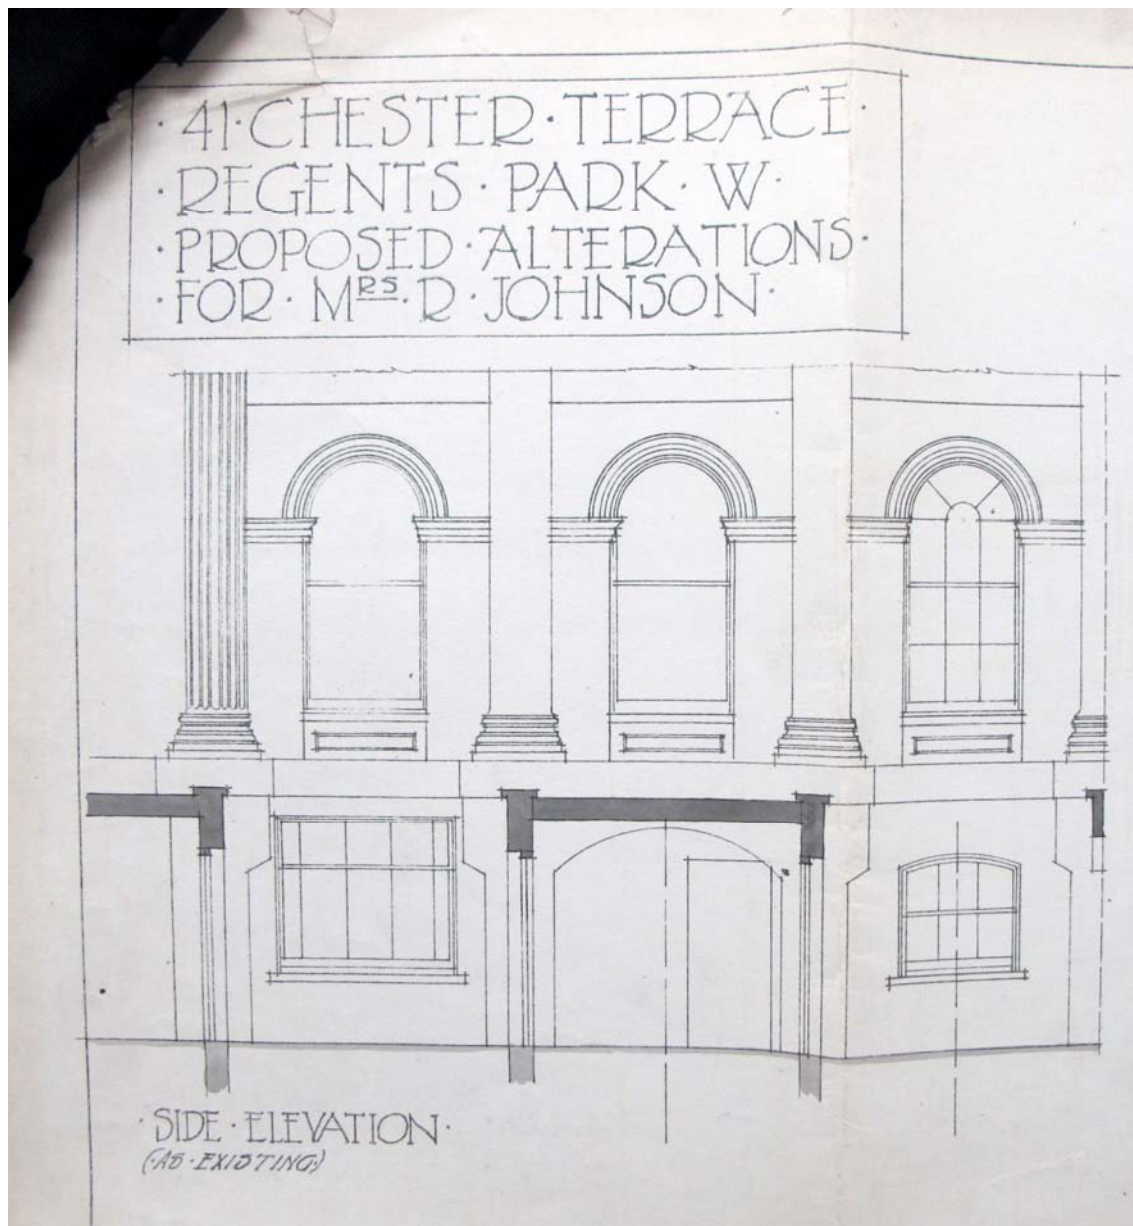 · 41 · CHESTER · TERRACE ·
· REGENTS · PARK · W ·
· PROPOSED · ALTERATIONS ·
· FOR · MRS · R · JOHNSON ·
· SIDE · ELEVATION ·
(· AS · EXISTING ·)